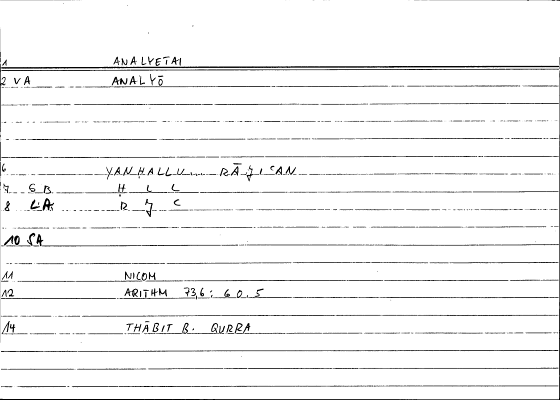 1 ANALYETAI
2 VA ANALYŌ
6 YANHALLU... RĀǧIʿAN
7 SB Ḥ L L
8 LA R ǧ ʿ
10 SA
11 NICOM
12 ARITHM 73,6 : 60.5
14 THĀBIT B. QURRA